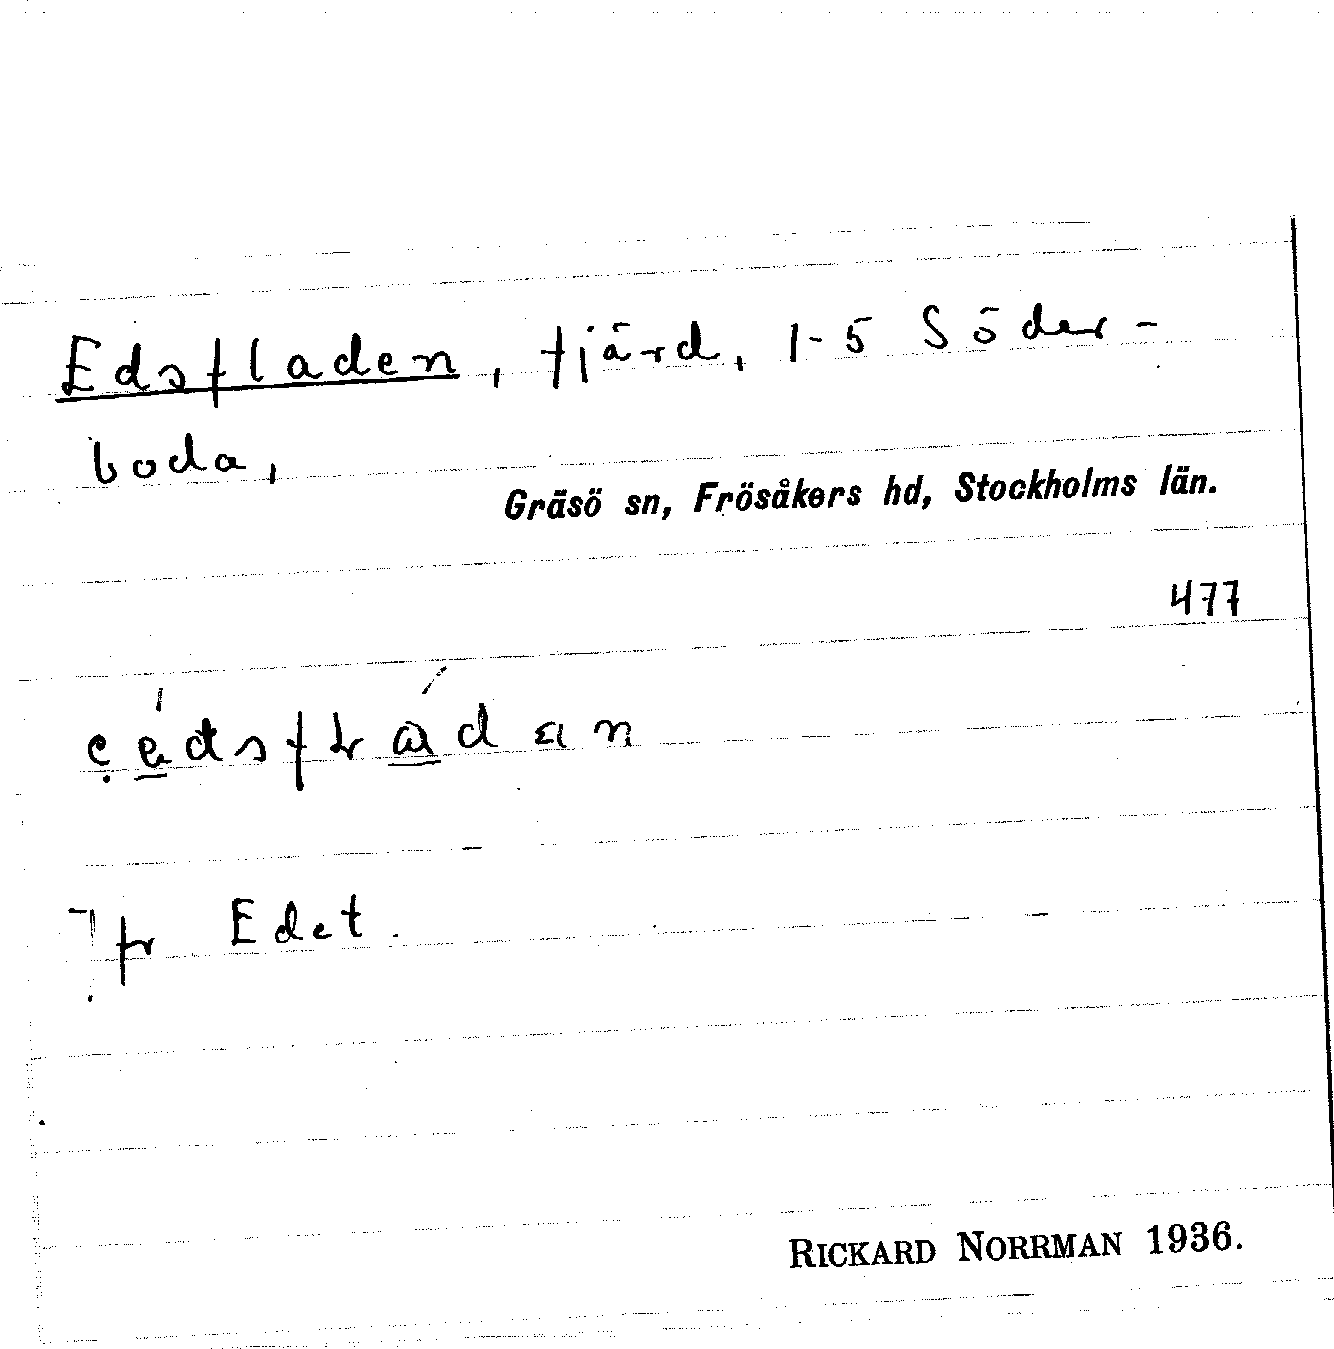 Edsfladen, fjärd, 1-5 Söder-
boda,
Gräsö sn, Frösåkers hd, Stockholms län.
477
Jfr Edet.
RICKARD NORRMAN 1936.